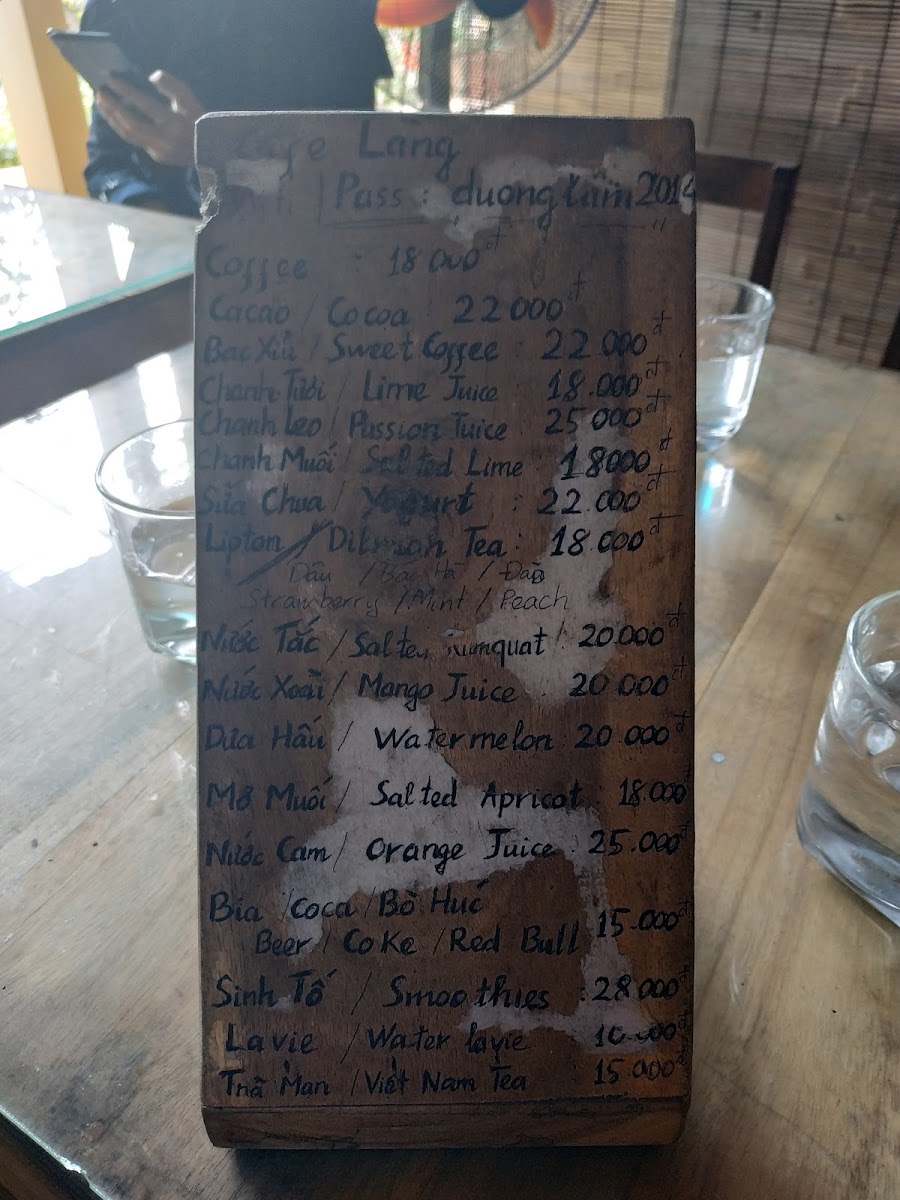 Cafe Lang
Wifi | Pass : duonglam2014
Coffee : 18 000đ
Cacao / Cocoa 22 000đ
Bac Xiủ / Sweet Coffee : 22 000đ
Chanh Tươi / Lime Juice : 18.000đ
Chanh Leo / Passion Juice : 25 000đ
Chanh Muối / Salted Lime 18000đ
Sữa Chua / Yogurt : 22.000đ
Lipton / Dilmah Tea : 18.000đ
Dâu / Bạc Hà / Đào
Strawberry / Mint / Peach
Nước Tắc / Salted Kumquat : 20.000đ
Nước Xoài / Mango Juice : 20 000đ
Dưa Hấu / Watermelon 20 000đ
Mơ Muối / Salted Apricot : 18.000đ
Nước Cam / Orange Juice : 25.000đ
Bia / Coca / Bò Húc
Beer / Coke / Red Bull 15.000đ
Sinh Tố / Smoothies : 28 000đ
Lavie / Water lavie 10 000đ
Trà Mạn / Việt Nam Tea 15 000đ